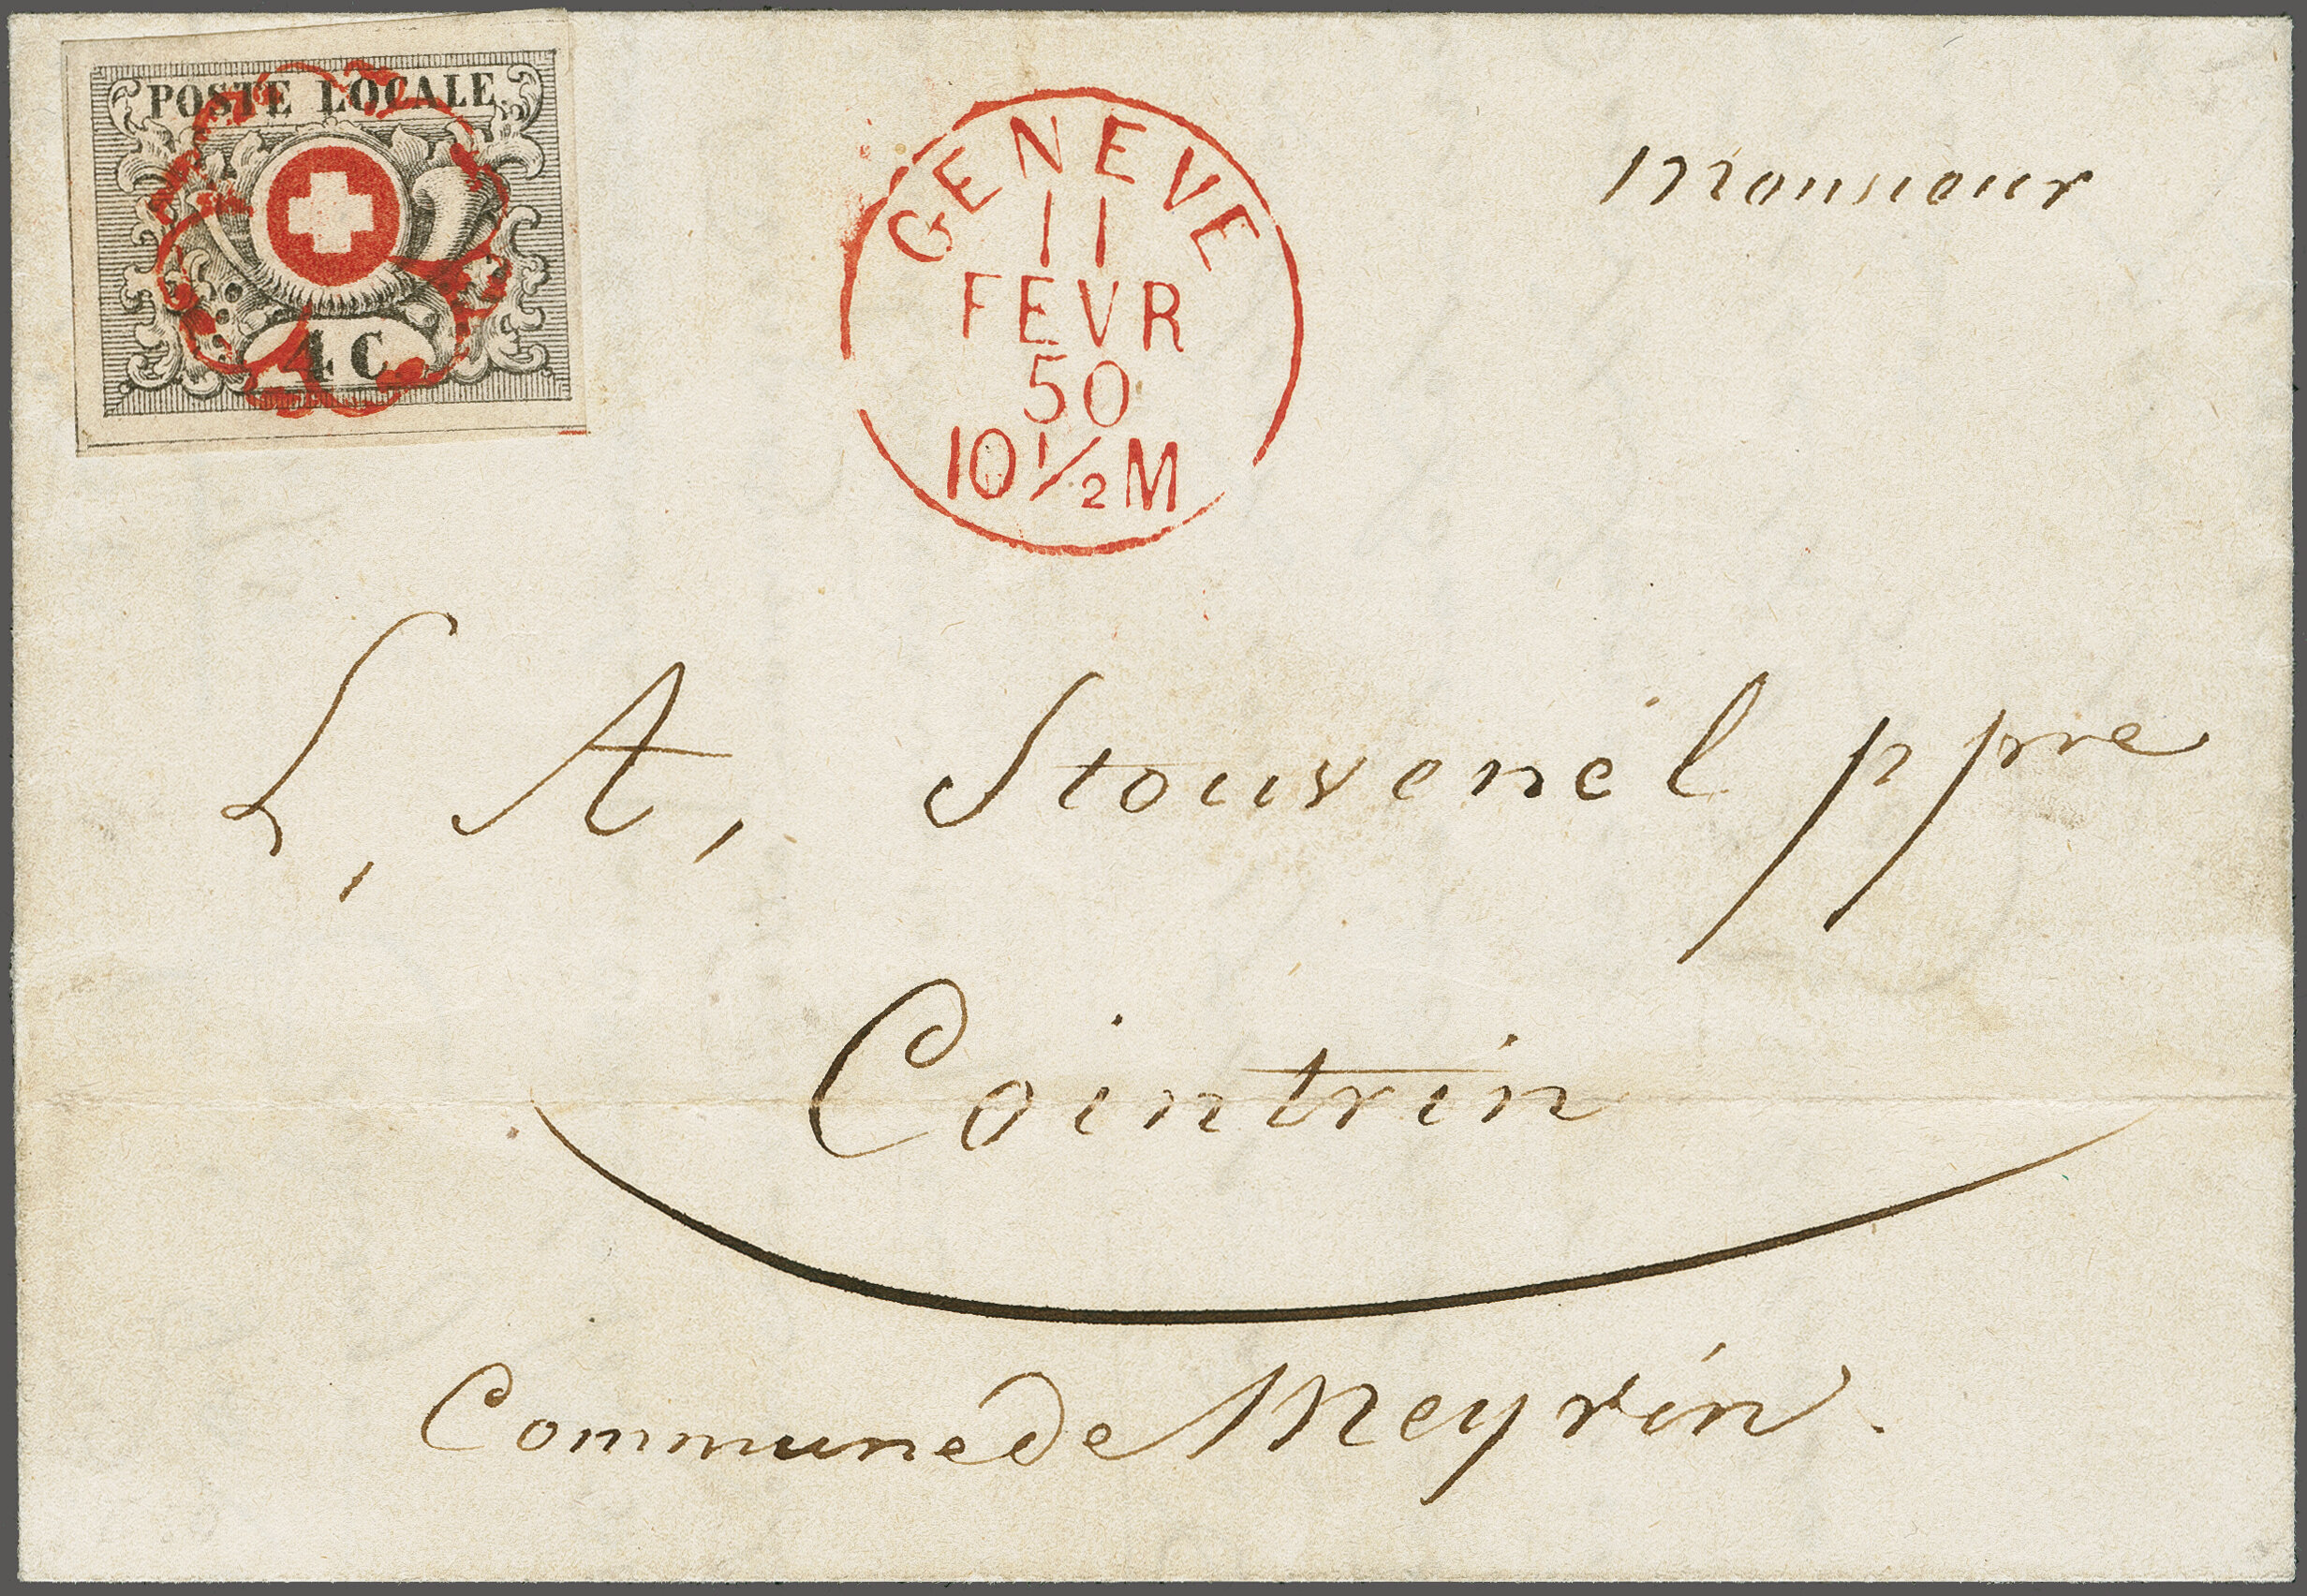 POSTE LOCALE.
4 C
GENEVE
11
FEVR
50
10 ½ M
Monsieur
L, A, Stouvenél p pre
Cointrin
Commune de Meyrin.